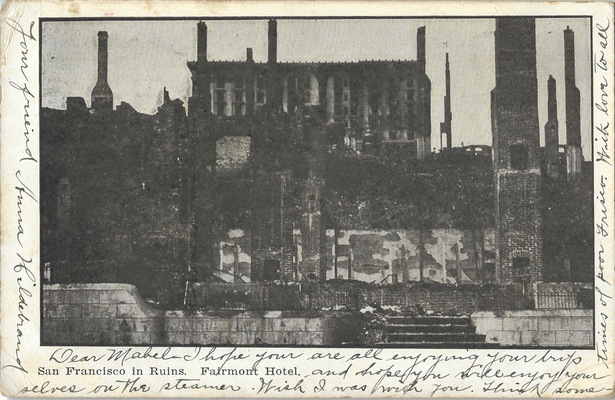 Dear Mabel - I hope your are all enjoying your trip
San Francisco in Ruins. Fairmont Hotel.
and hope you will enjoy your
selves on the steamer. Wish I was with you. Think some
times of poor Frisco. With love to all
Your friend Anna Hildebrand